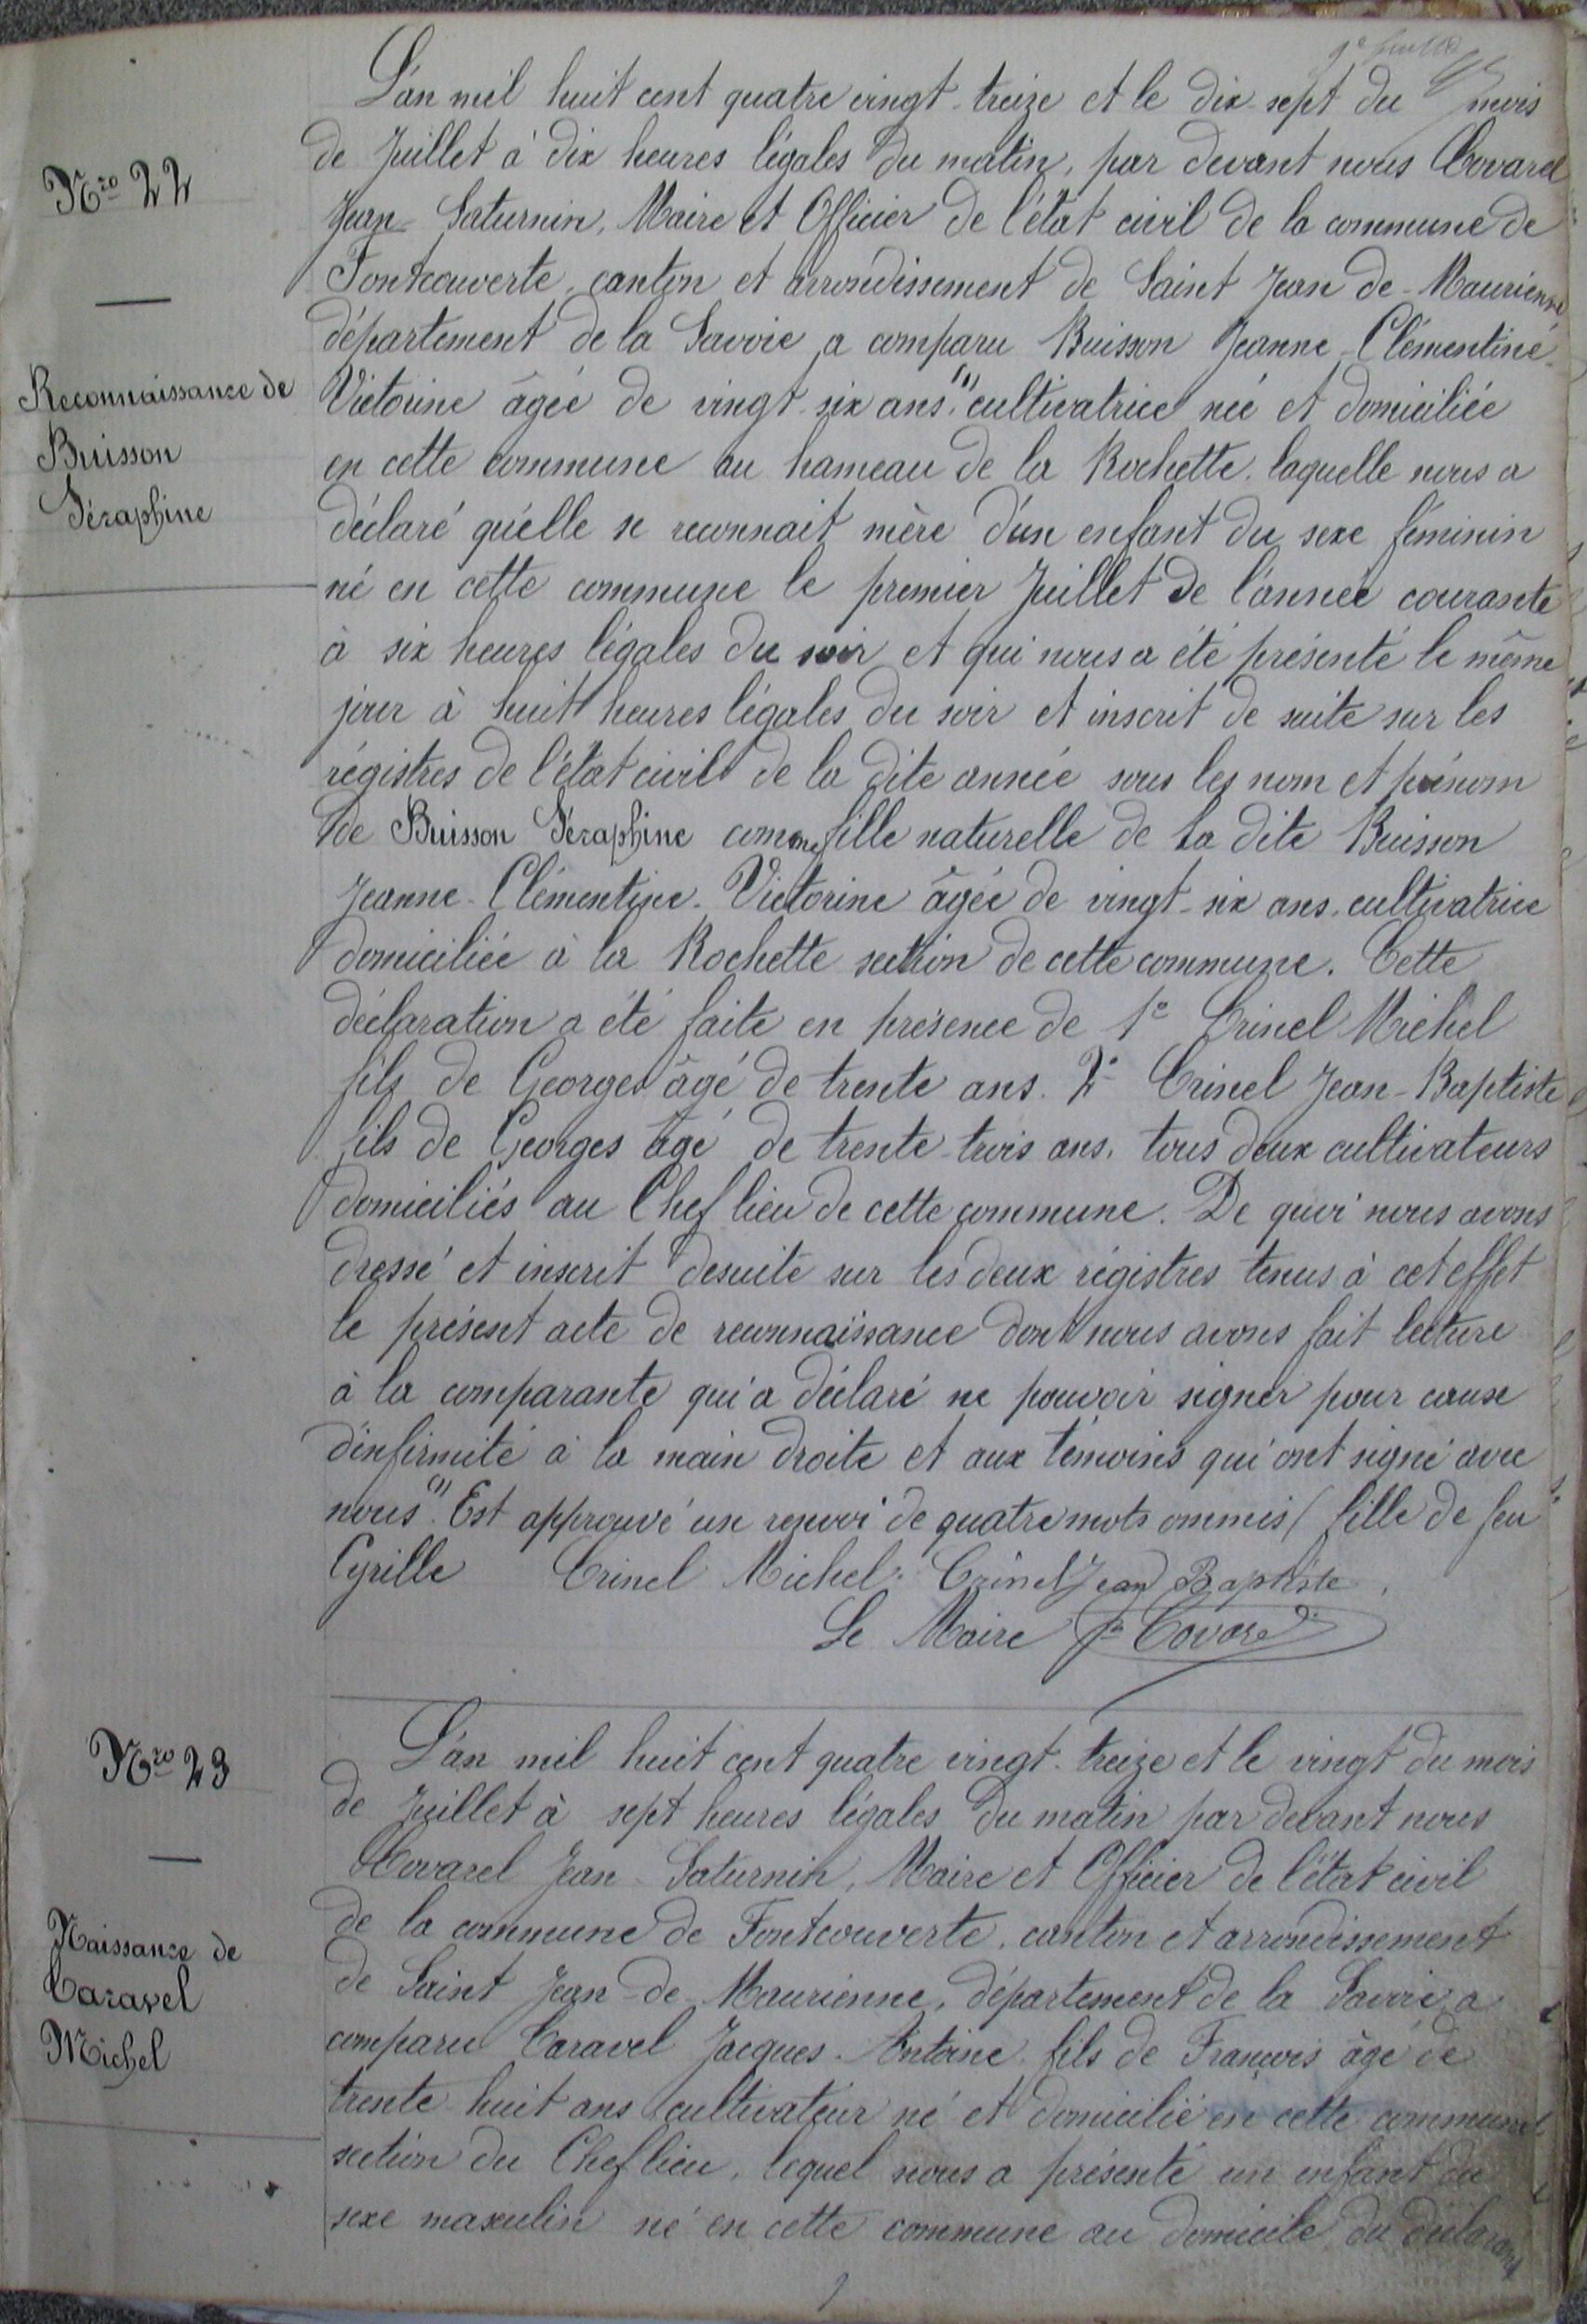 9e feuillet
L'an mil huit cent quatre vingt-treize et le dix-sept du mois
de Juillet à dix heures légales du matin, par devant nous Covarel
Jean-Saturnin, Maire et Officier de l'état civil de la commune de
Fontcouverte, canton et arrondissement de Saint Jean de-Maurienne
département de la Savoie a comparu Buisson Jeanne-Clémentine-
Victorine âgée de vingt-six ans,(1) cultivatrice née et domiciliée
en cette commune au hameau de la Rochette. laquelle nous a
déclaré qu'elle se reconnait mère d'un enfant du sexe féminin
né en cette commune le premier Juillet de l'année courante
à six heures légales du soir et qui nous a été présenté le même
jour à huit heures légales du soir et inscrit de suite sur les
régistres de l'état civil de la dite année sous les nom et prénom
de Buisson Séraphine comme fille naturelle de la dite Buisson
Jeanne-Clémentine-Victorine âgée de vingt-six ans, cultivatrice
domiciliée à la Rochette section de cette commune. Cette
déclaration a été faite en présence de 1° Crinel Michel
fils de Georges âgé de trente ans. 2° Crinel Jean-Baptiste
fils de Georges âgé de trente-trois ans, tous deux cultivateurs
domiciliés au Chef lieu de cette commune. De quoi nous avons
dressé et inscrit desuite sur les deux régistres tenus à cet effet
le présent acte de reconnaissance dont nous avons fait lecture
à la comparante qui a déclaré ne pouvoir signer pour cause
d'infirmité à la main droite et aux témoins qui ont signé avec
nous (1). Est approuvé un renvoi de quatre mots ommis / fille de feu
Cyrille Crinel Michel. Crinel Jean Baptiste
Le Maire Covarel
Nro 22
Reconnaissance de
Buisson
Séraphine
L'an mil huit cent quatre vingt-treize et le vingt du mois
de Juillet à sept heures légales du matin par devant nous
Covarel Jean-Saturnin, Maire et Officier de l'état civil
de la commune de Fontcouverte, canton et arrondissement
de Saint Jean-de-Maurienne, département de la Savoie, a
comparu Caravel Jacques-Antoine fils de François âgé de
trente huit ans cultivateur né et domicilié en cette commune
section du Chef lieu, lequel nous a présenté un enfant du
sexe masculin né en cette commune au domicile du déclarant
Nro 23
Naissance de
Caravel
Michel